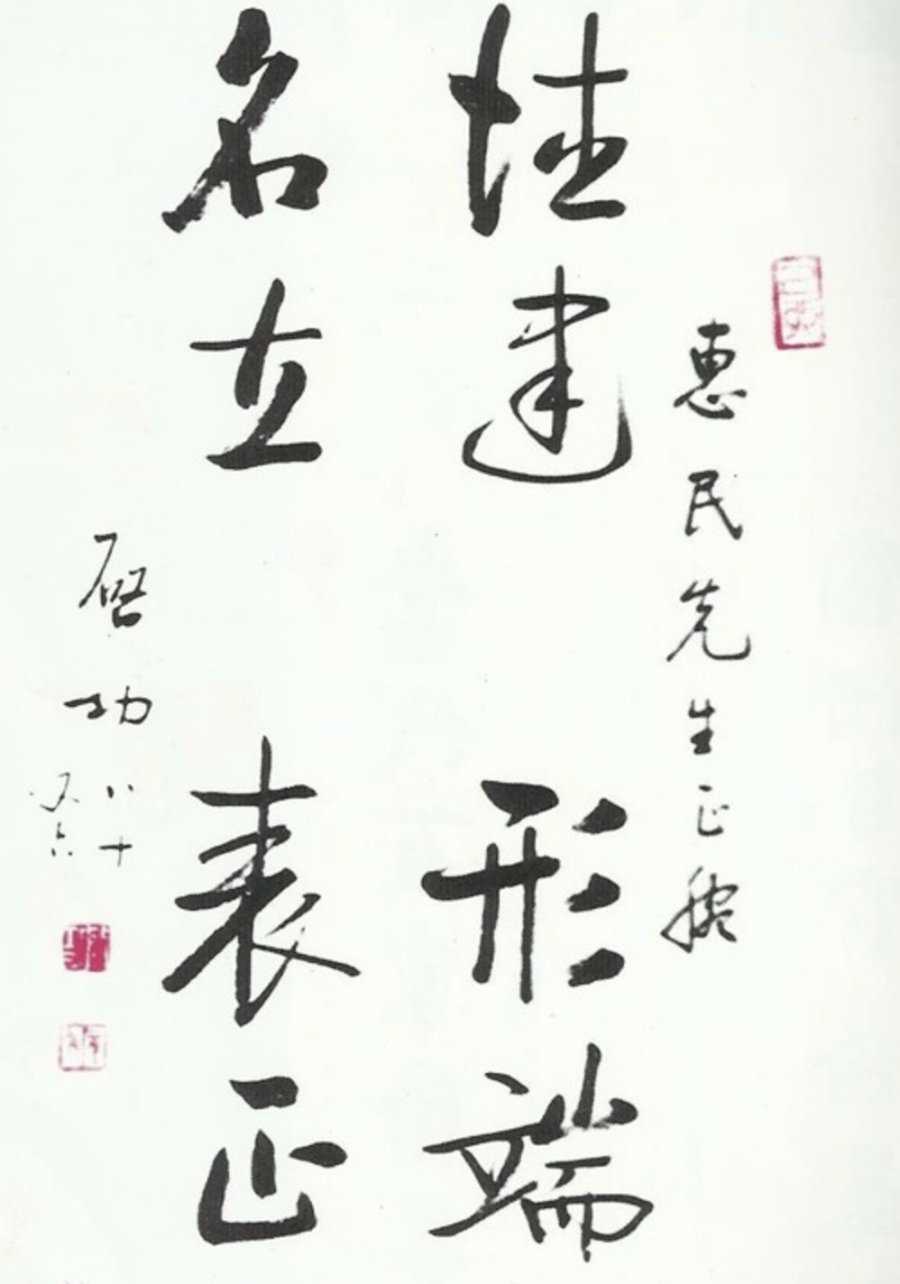 惠民先生正腕
德建形端
名立表正
启功
八十
又六